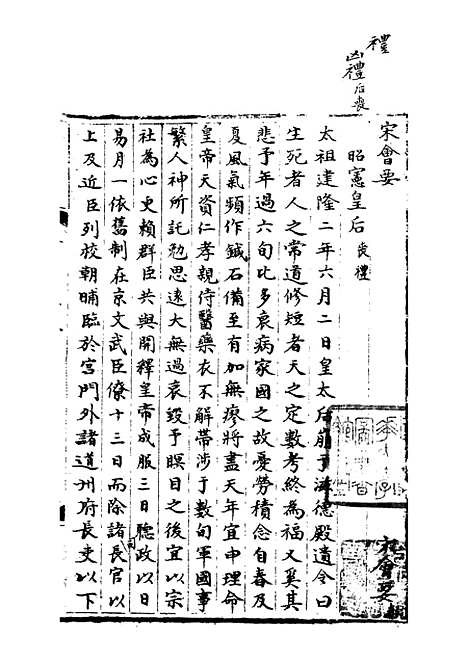 禮
凶禮后喪
宋會要
昭憲皇后喪禮
太祖建隆二年六月二日皇太后崩于滋德殿遺令曰
生死者人之常道修短者天之定數考終為福又奚其
悲予年過六旬比多衰病家國之故憂勞積念自春及
夏風氣頻作鍼石備至有加無瘳將盡天年宜申理命
皇帝天資仁孝親侍醫藥衣不解帶涉于數旬軍國事
繁人神所託勉思遠大無過哀毀予瞑目之後宜以宗
社為心更賴群臣共與開釋皇帝成服三日聽政以日
易月一依舊制在京文武臣僚十三日而除諸司長官以
上及近臣列校朝晡臨於宮門外諸道州府長吏以下
宋會要